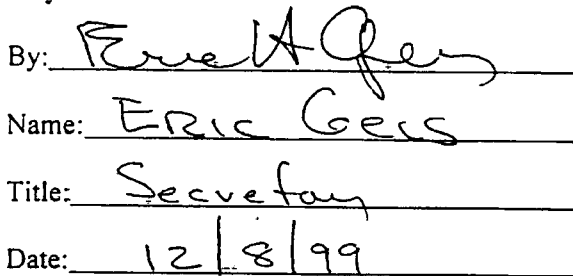 By: Eric H Geis
Name: Eric Geis
Title: Secretary
Date: 12/8/99